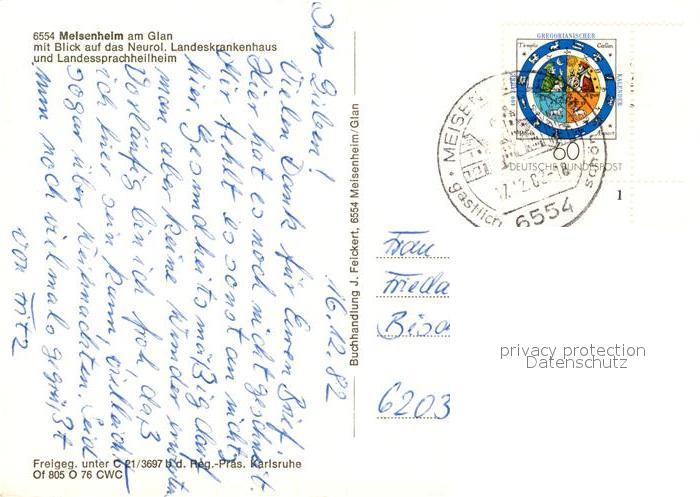 6554 Meisenheim am Glan
mit Blick auf das Neurol. Landeskrankenhaus
und Landessprachheilheim
16.12.82
Ihr Lieben!
Vielen Dank für Euren Brief
Hier hat es noch nicht geschneit.
Mir fehlt es sonst an nichts
hier. Gesundheitsmäßig darf
man aber keine Wunder erwarten
Vorläufig bin ich froh daß
ich hier sein kann, vielleicht
sogar über Weihnachten. Seid
nun noch vielmals gegrüßt
von Fritz
Buchhandlung J. Feickert, 6554 Meisenheim/Glan
Freigeg. unter C 21/3697 b d. Reg.-Präs. Karlsruhe
Of 805 O 76 CWC
GREGORIANISCHER
KALENDER
400 JAHRE
60
DEUTSCHE BUNDESPOST
MEISEN
17.12.82-18
gastlich
schön
6554
1
Frau
Frieda
6203
privacy protection
Datenschutz